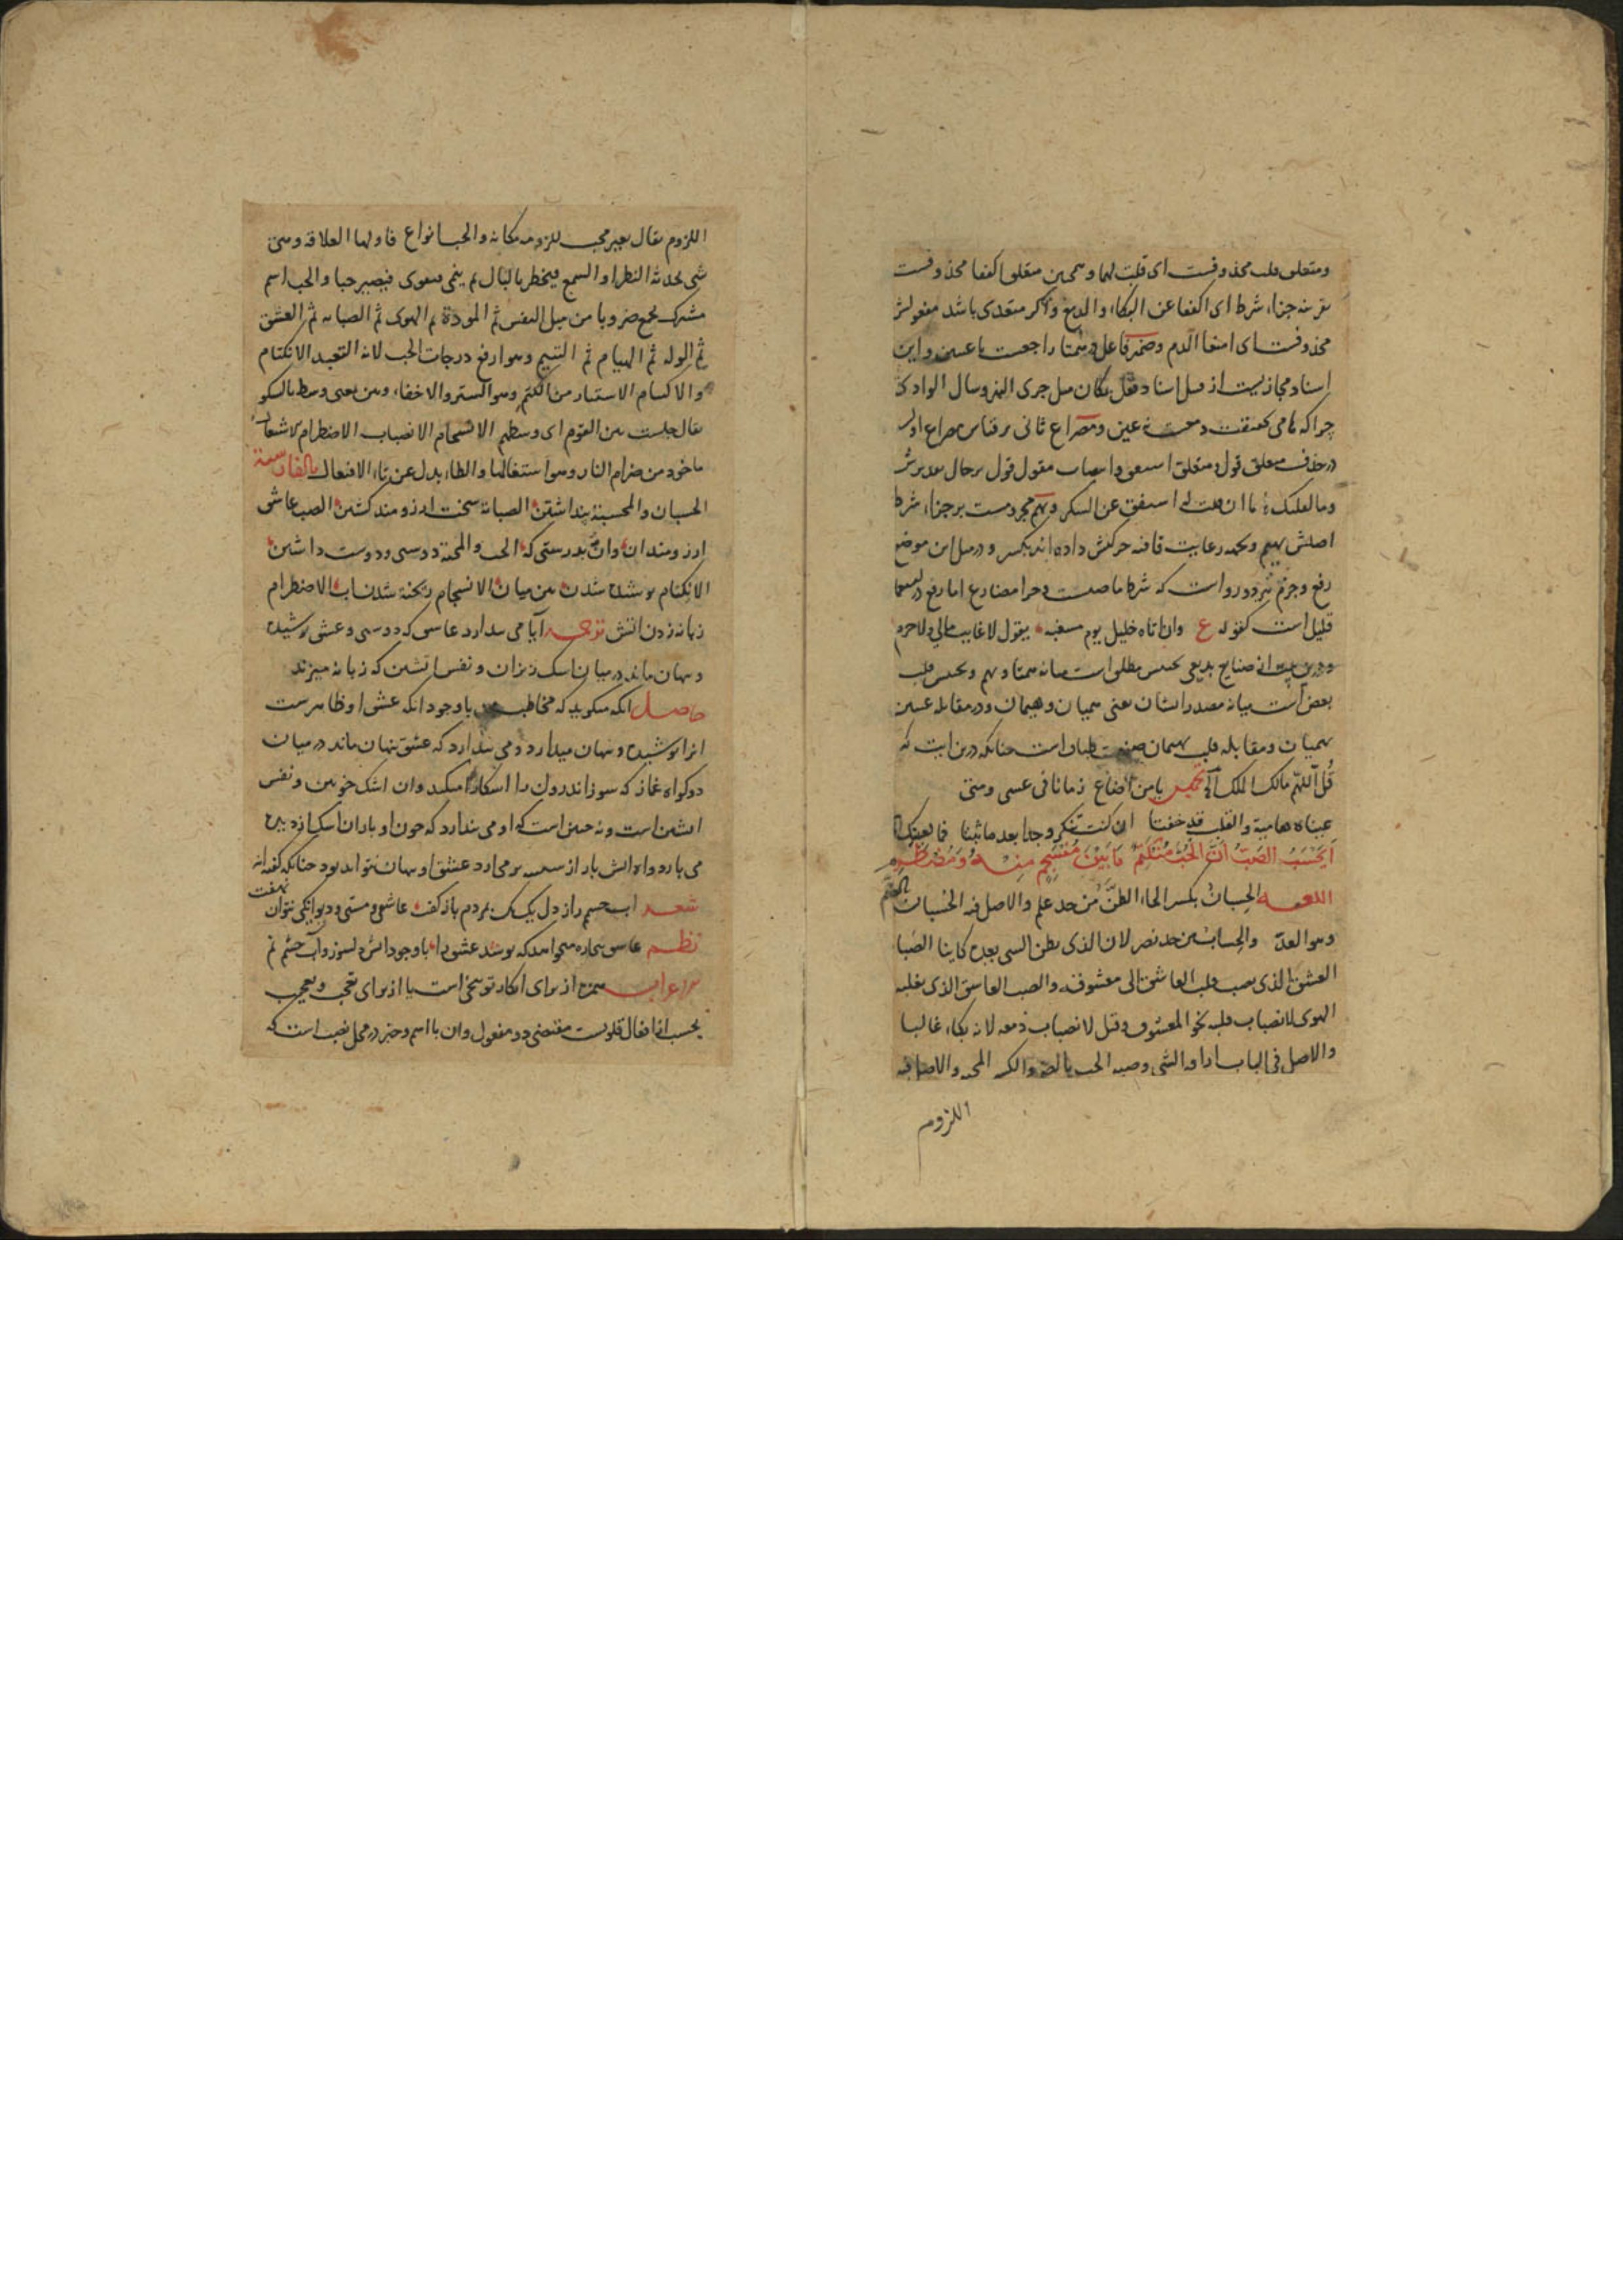 ومتعلق قلت محذوفست ای قلت لهما وهمچنین متعلق اکففا محذوفست
بقرینه جزاء شرط ای اکففا عن البکاء والدمع واکر متعدی باشد مفعولش
محذوفست ای امنعا الدم وضمیر فاعل در همتا راجعست با عینین واین
اسناد مجازیست از قبیل اسناد فعل بمکان مثل جری النهر وسال الوادی
چرا که هامی
در حذف متعلق قول ومتعلق استفق
وما لقلبک ان قلت له استفق عن السکر ویهم مجزومست بر جزاء شرط
اصلش یهیم وبجهة رعایت قافیه حرکتش داده اند بکسر ودر مثل این موضع
رفع وجزم هر دو رواست که شرط ماضیست وجزا مضارع اما رفع
قلیل است کقوله ع وان اتاه خلیل یوم مسغبة یقول لا غایب مالی ولا حرم
ودرین بیت از صنایع بدیعی تجنیس مطلق است میانه همتا ویهم وتجنیس قلب
بعض است میانه مصدر ایشان یعنی همیان وهیمان ودر مقابله عینین
همیان ومقابله قلب هیمان صنعت طباق است چنانکه درین ایت که
قُلِ اللّهُمَّ مالک الملک الآیه تخمیس یا من اضاع زمانا فی عسی ومتی
عیناه هامیة والقلب قد خفتا ان کنت تنکر وجدا بعد ما ثبتا فما لعینیک
اَیَحْسَبُ الصَّبُّ اَنَّ الحُبَّ مُنْکَتِمٌ مَا بَیْنَ مُنْسَجِمٍ مِنْهُ وَمُضْطَرِمِ
اللغه الحِسبان بکسر الحاء الظنّ من حد علم والاصل فیه الحُسبان بالضم
وهو العدّ والحِساب من حد نصر لان الذی یظن الشی یعده کاینا الصَبا
العشق الذی یصب قلب العاشق الی معشوقه والصب العاشق الذی یغلبه
الهوی لانصباب قلبه نحو المعشوق وقیل لانصباب دمعه لانه بکاء غالبا
والاصل فی الباب اراقة الشی وصبه الحب بالضم والکسر المحبة والاصل فیه
اللزوم
اللزوم یقال بعیر محب للزومه مکانه والحب انواع فاولها العلاقه وهی
شی یحدثه النظر او السمع فیخطر بالبال ثم ینمی فیقوی فیصیر حبا والحب اسم
مشترک یجمع ضروبا من میل النفس ثم المودة ثم الهوی ثم الصبابه ثم العشق
ثم الوله ثم الهیام ثم التتیم وهو ارفع درجات الحب لانه التعبد الانکتام
والاکتتام الاستتار من الکتم وهو الستر والاخفاء وبین بمعنی وسط بالسکون
یقال جلست بین القوم ای وسطهم الانسجام الانصباب الاضطرام الاشتعال
ماخوذ من ضرام النار وهو اشتعالها والطاء بدل عن تاء الافتعال بالفارسیة
الحسبان والمحسبة پنداشتن الصبابة سخت ارزومند کشتن الصب عاشق
ارزومند ان وانّ بدرستی که الحب والمحبة دوستی ودوست داشتن
الانکتام پوشیده شدن بین میان الانسجام ریخته شدن اب الاضطرام
زبانه زدن اتش ترجمه آیا می پندارد عاشق که دوستی وعشق پوشیده
وپنهان ماند در میان اشک ریزان ونفس اتشین که زبانه میزند
حاصل انکه میکوید که مخاطب من با وجود انکه عشق او ظاهرست
انرا پوشیده وپنهان میدارد ومی پندارد که عشق پنهان ماند در میان
دو کواه غماز که سوز اندرون را اشکارا میکند وان اشک خونین ونفس
اتشین است ونه چنین است که او می پندارد که چون او باران اشک از دیده
می بارد واه اتش بار از سینه بر می ارد عشق او پنهان نتواند بود چنانکه گفته اند
شعر اب چشم راز دل یک یک بمردم باز کفت عاشقی ومستی ودیوانکی نتوان نهفت
نظم عاشق بیچاره میخواهد که پوشد عشق را با وجود اتش دلسوز وآب چشم نم
اعراب همزه از برای انکار توبیخی است یا از برای تعجب وتعجیب
یحسب از افعال قلوبست مقتضی دو مفعول وان با اسم وخبر در محل نصب است که